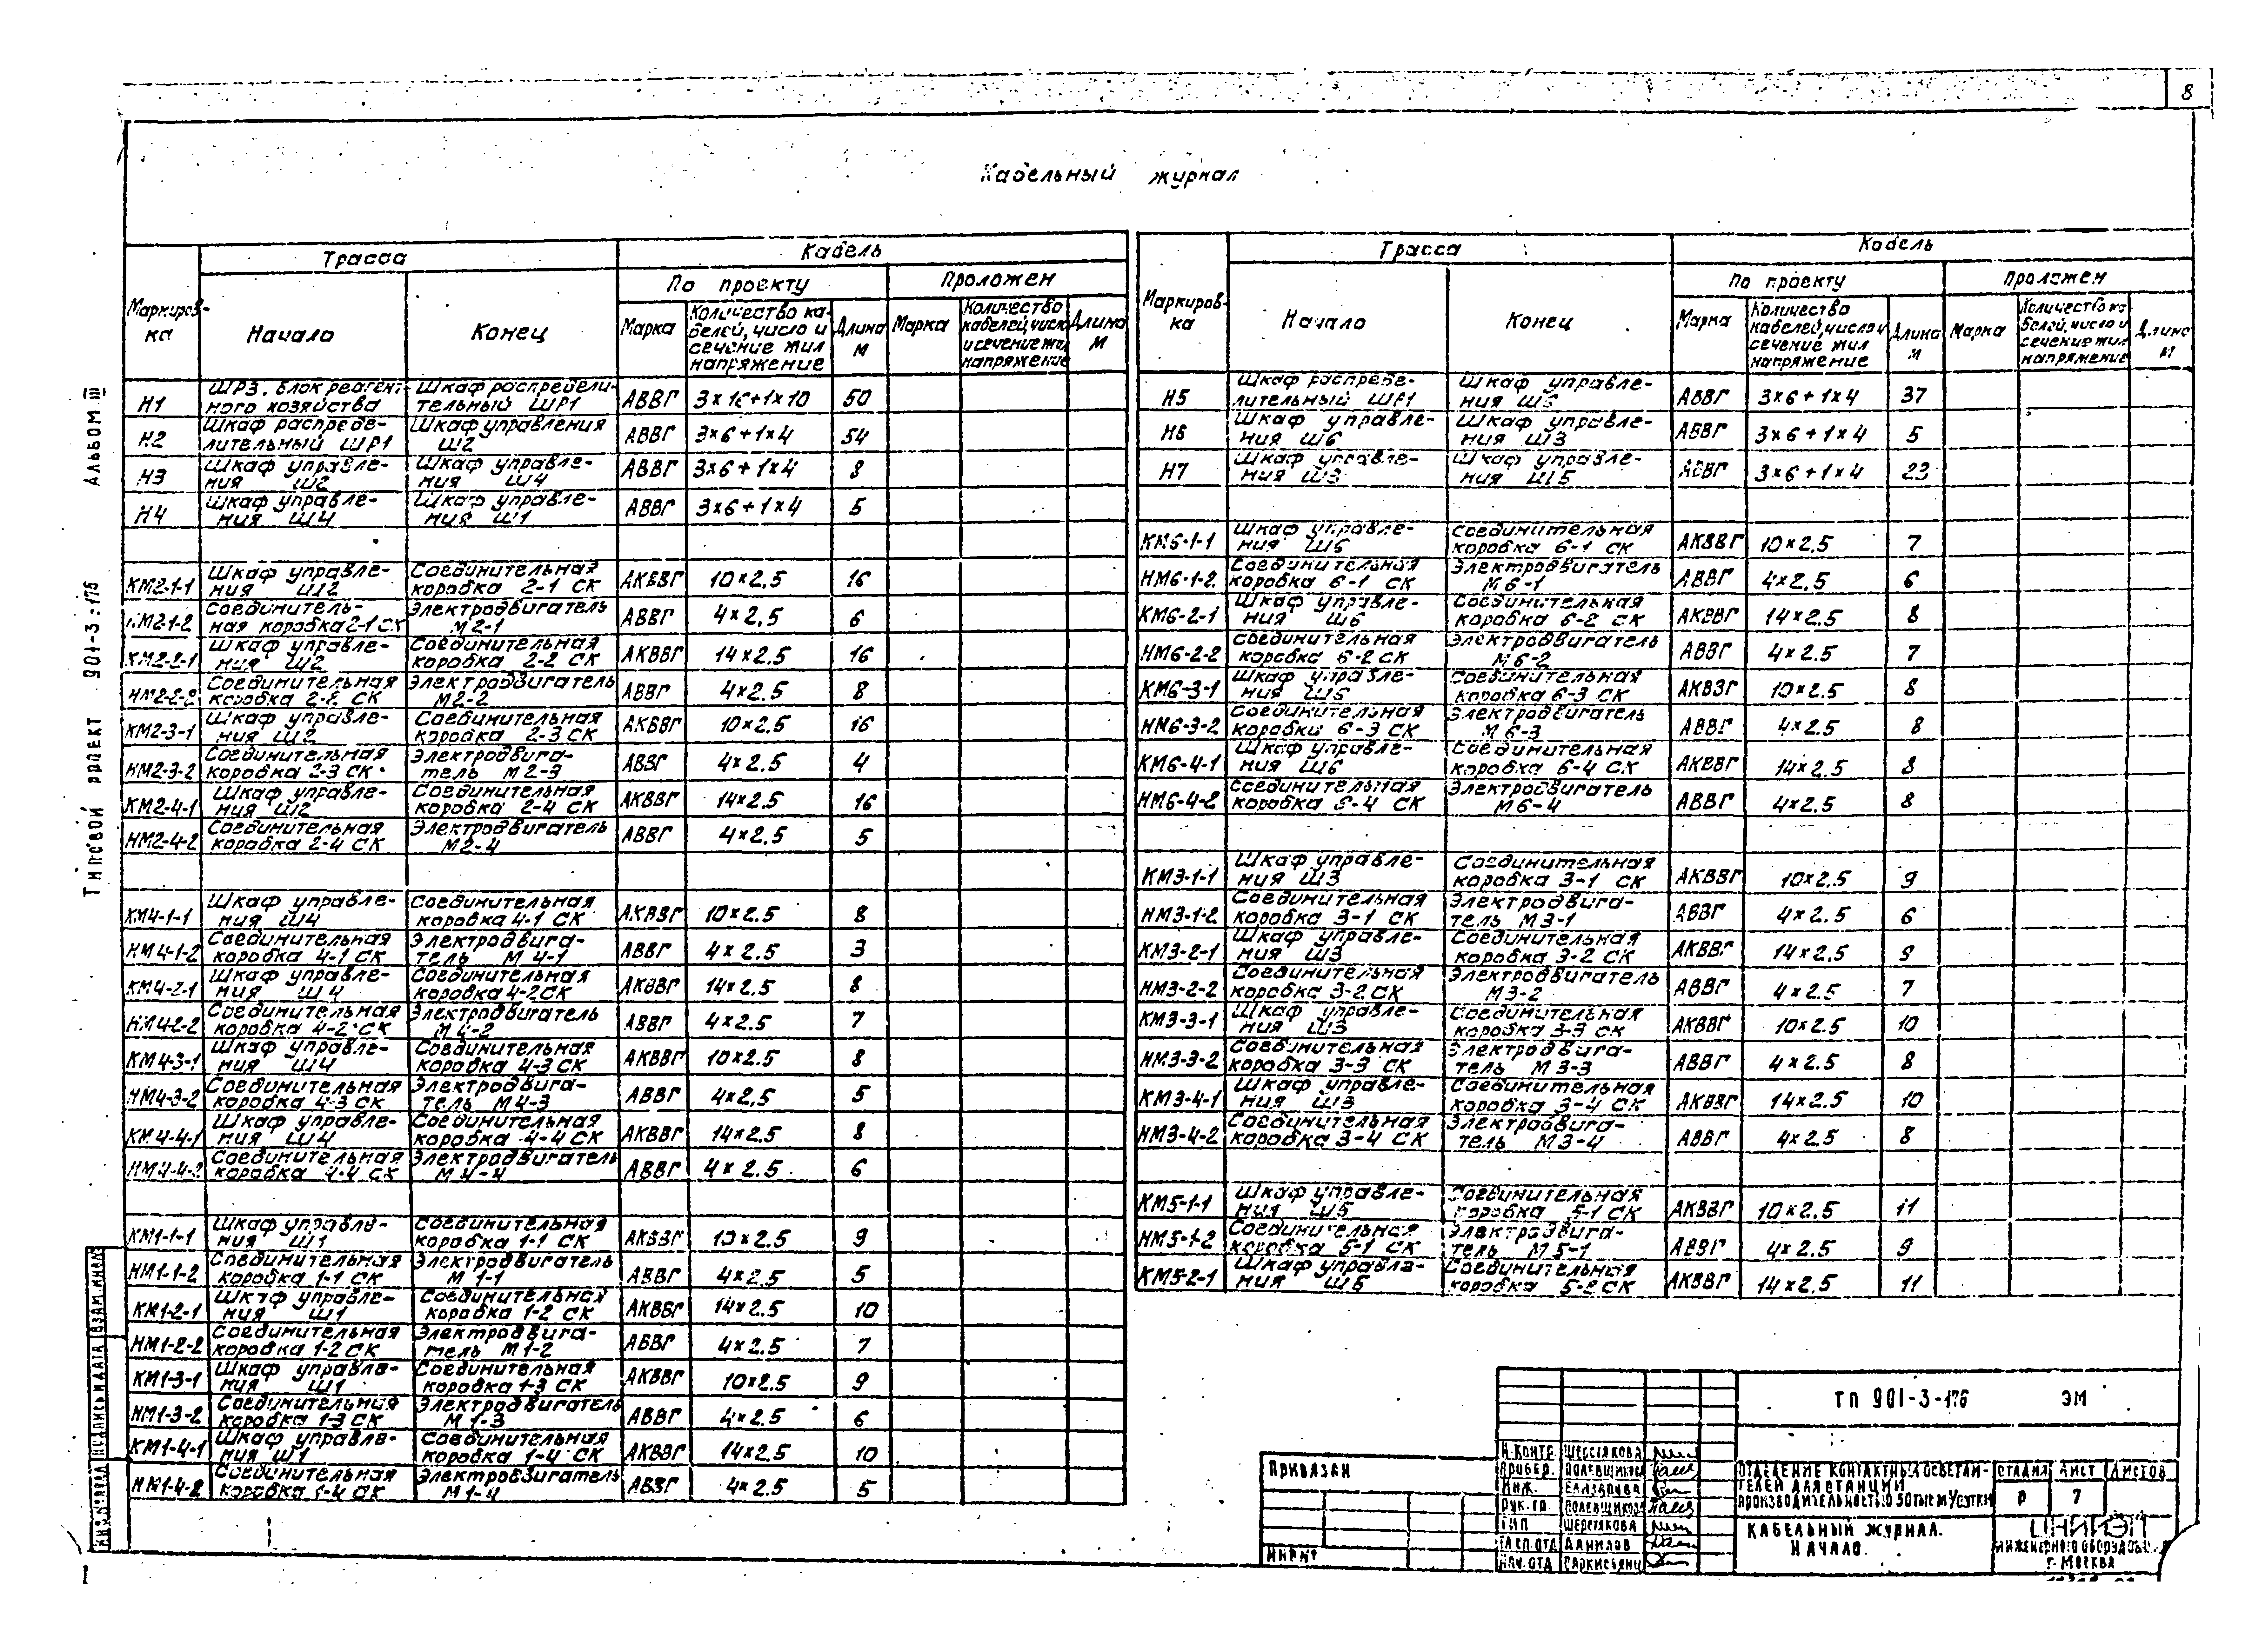 8
Кабельный журнал
Маркировка
Трасса
Кабель
Начало
Конец
По проекту
Проложен
Марка
Количество кабелей, число и сечение жил напряжение
Длина М
Марка
Количество кабелей, число и сечение жил напряжение
Длина М
Н1 ШРЗ. блок реагентного хозяйства Шкаф распределительный ШР1 АВВГ 3×16+1×10 50
Н2 Шкаф распределительный ШР1 Шкаф управления Ш2 АВВГ 3×6+1×4 54
Н3 Шкаф управления Ш2 Шкаф управления Ш4 АВВГ 3×6+1×4 8
Н4 Шкаф управления Ш4 Шкаф управления Ш1 АВВГ 3×6+1×4 5
КМ2-1-1 Шкаф управления Ш2 Соединительная коробка 2-1 СК АКВВГ 10×2.5 16
НМ2-1-2 Соединительная коробка 2-1 СК Электродвигатель М2-1 АВВГ 4×2.5 6
КМ2-2-1 Шкаф управления Ш2 Соединительная коробка 2-2 СК АКВВГ 14×2.5 16
НМ2-2-2 Соединительная коробка 2-2 СК Электродвигатель М2-2 АВВГ 4×2.5 8
КМ2-3-1 Шкаф управления Ш2 Соединительная коробка 2-3 СК АКВВГ 10×2.5 16
НМ2-3-2 Соединительная коробка 2-3 СК Электродвигатель М2-3 АВВГ 4×2.5 4
КМ2-4-1 Шкаф управления Ш2 Соединительная коробка 2-4 СК АКВВГ 14×2.5 16
НМ2-4-2 Соединительная коробка 2-4 СК Электродвигатель М2-4 АВВГ 4×2.5 5
КМ4-1-1 Шкаф управления Ш4 Соединительная коробка 4-1 СК АКВВГ 10×2.5 8
НМ4-1-2 Соединительная коробка 4-1 СК Электродвигатель М4-1 АВВГ 4×2.5 3
КМ4-2-1 Шкаф управления Ш4 Соединительная коробка 4-2 СК АКВВГ 14×2.5 8
НМ4-2-2 Соединительная коробка 4-2 СК Электродвигатель М4-2 АВВГ 4×2.5 7
КМ4-3-1 Шкаф управления Ш4 Соединительная коробка 4-3 СК АКВВГ 10×2.5 8
НМ4-3-2 Соединительная коробка 4-3 СК Электродвигатель М4-3 АВВГ 4×2.5 5
КМ4-4-1 Шкаф управления Ш4 Соединительная коробка 4-4 СК АКВВГ 14×2.5 8
НМ4-4-2 Соединительная коробка 4-4 СК Электродвигатель М4-4 АВВГ 4×2.5 6
КМ1-1-1 Шкаф управления Ш1 Соединительная коробка 1-1 СК АКВВГ 10×2.5 9
НМ1-1-2 Соединительная коробка 1-1 СК Электродвигатель М1-1 АВВГ 4×2.5 5
КМ1-2-1 Шкаф управления Ш1 Соединительная коробка 1-2 СК АКВВГ 14×2.5 10
НМ1-2-2 Соединительная коробка 1-2 СК Электродвигатель М1-2 АВВГ 4×2.5 7
КМ1-3-1 Шкаф управления Ш1 Соединительная коробка 1-3 СК АКВВГ 10×2.5 9
НМ1-3-2 Соединительная коробка 1-3 СК Электродвигатель М1-3 АВВГ 4×2.5 6
КМ1-4-1 Шкаф управления Ш1 Соединительная коробка 1-4 СК АКВВГ 14×2.5 10
НМ1-4-2 Соединительная коробка 1-4 СК Электродвигатель М1-4 АВВГ 4×2.5 5
Маркировка
Трасса
Кабель
Начало
Конец
По проекту
Проложен
Марка
Количество кабелей, число и сечение жил напряжение
Длина М
Марка
Количество кабелей, число и сечение жил напряжение
Длина М
Н5 Шкаф распределительный ШР1 Шкаф управления АВВГ 3×6+1×4 37
Н6 Шкаф управления Ш6 Шкаф управления Ш3 АВВГ 3×6+1×4 5
Н7 Шкаф управления Ш3 Шкаф управления Ш5 АВВГ 3×6+1×4 23
КМ6-1-1 Шкаф управления Ш6 Соединительная коробка 6-1 СК АКВВГ 10×2.5 7
НМ6-1-2 Соединительная коробка 6-1 СК Электродвигатель М6-1 АВВГ 4×2.5 6
КМ6-2-1 Шкаф управления Ш6 Соединительная коробка 6-2 СК АКВВГ 14×2.5 8
НМ6-2-2 Соединительная коробка 6-2 СК Электродвигатель М6-2 АВВГ 4×2.5 7
КМ6-3-1 Шкаф управления Ш6 Соединительная коробка 6-3 СК АКВВГ 10×2.5 8
НМ6-3-2 Соединительная коробка 6-3 СК Электродвигатель М6-3 АВВГ 4×2.5 8
КМ6-4-1 Шкаф управления Ш6 Соединительная коробка 6-4 СК АКВВГ 14×2.5 8
НМ6-4-2 Соединительная коробка 6-4 СК Электродвигатель М6-4 АВВГ 4×2.5 8
КМ3-1-1 Шкаф управления Ш3 Соединительная коробка 3-1 СК АКВВГ 10×2.5 9
НМ3-1-2 Соединительная коробка 3-1 СК Электродвигатель М3-1 АВВГ 4×2.5 6
КМ3-2-1 Шкаф управления Ш3 Соединительная коробка 3-2 СК АКВВГ 14×2.5 9
НМ3-2-2 Соединительная коробка 3-2 СК Электродвигатель М3-2 АВВГ 4×2.5 7
КМ3-3-1 Шкаф управления Ш3 Соединительная коробка 3-3 СК АКВВГ 10×2.5 10
НМ3-3-2 Соединительная коробка 3-3 СК Электродвигатель М3-3 АВВГ 4×2.5 8
КМ3-4-1 Шкаф управления Ш3 Соединительная коробка 3-4 СК АКВВГ 14×2.5 10
НМ3-4-2 Соединительная коробка 3-4 СК Электродвигатель М3-4 АВВГ 4×2.5 8
КМ5-1-1 Шкаф управления Ш5 Соединительная коробка 5-1 СК АКВВГ 10×2.5 11
НМ5-1-2 Соединительная коробка 5-1 СК Электродвигатель М5-1 АВВГ 4×2.5 9
КМ5-2-1 Шкаф управления Ш5 Соединительная коробка 5-2 СК АКВВГ 14×2.5 11
ТИПОВОЙ ПРОЕКТ 901-3-176 АЛЬБОМ III
ИНВ.№ ПОДЛ. ПОДПИСЬ И ДАТА ВЗАМ.ИНВ.№
ПРИВЯЗАН
ИНВ.№
Н.КОНТР. ШЕРСТЯКОВА
ПРОВЕР. ПОЛЕВЩИКОВА
ИНЖ.
РУК.ГР. ПОЛЕВЩИКОВА
ГИП ШЕРСТЯКОВА
ГЛ.СП.ОТД ДАНИЛОВ
НАЧ.ОТД САРКИСЬЯНЦ
ТП 901-3-176 ЭМ
ОТДЕЛЕНИЕ КОНТАКТНЫХ ОСВЕТЛИТЕЛЕЙ ДЛЯ СТАНЦИИ
ПРОИЗВОДИТЕЛЬНОСТЬЮ 50 ТЫС М³/СУТКИ
СТАДИЯ ЛИСТ ЛИСТОВ
Р 7
КАБЕЛЬНЫЙ ЖУРНАЛ.
НАЧАЛО.
ЦНИИЭП
ИНЖЕНЕРНОГО ОБОРУДОВ
Г. МОСКВА